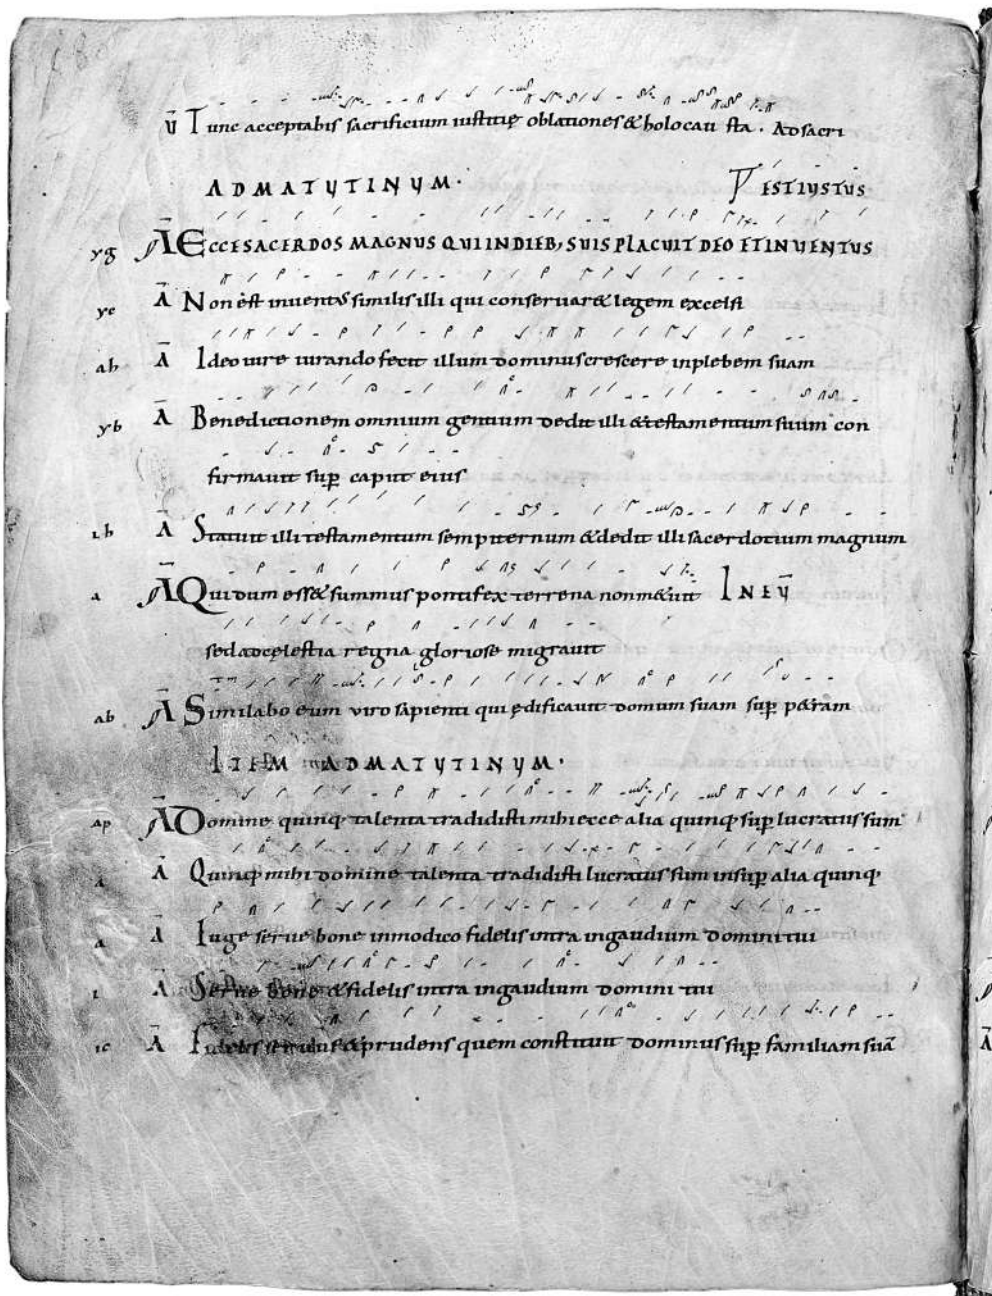 V̄ Tunc acceptabis sacrificium iustitię oblationes & holocau sta . Ad sacri
AD MATUTINUM .
EST IUSTUS
yg Ā ECCE SACERDOS MAGNUS QUI IN DIEB; SUIS PLACUIT DEO ET INVENTUS
ye Ā Non est inventus similis illi qui conservar& legem excelsi
ah Ā Ideo iure iurando fecit illum dominus crescere in plebem suam
yb Ā Benedictionem omnium gentium dedit illi & testamentum suum con
firmavit sup̄ caput eius
ib Ā Statuit illi testamentum sempiternum & dedit illi sacerdotium magnum
a Ā Qui dum ess& summus pontifex terrena non m&uit IN EṼ
sed ad cęlestia regna gloriose migravit
ab Ā Similabo eum viro sapienti qui ędificavit domum suam sup̄ p&ram
ITEM AD MATUTINUM .
ap Ā Domine quinq; talenta tradidisti mihi ecce alia quinq; sup̄ lucratus sum
a Ā Quinq; mihi domine talenta tradidisti lucratus sum insup̄ alia quinq;
a Ā Iuge serve bone in modico fidelis intra in gaudium domini tui
i Ā Serve bone & fidelis intra in gaudium domini tui
ic Ā Fidelis servus & prudens quem constituit dominus sup̄ familiam suā